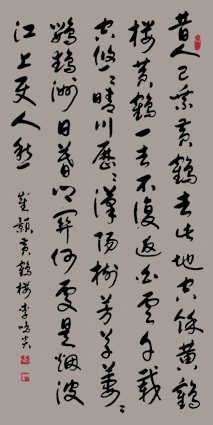 昔人已乘黃鶴去此地空餘黃鶴
樓黃鶴一去不復返白雲千載
空悠々晴川歷々漢陽樹芳草萋々
鸚鵡洲日暮鄉關何處是烟波
江上使人愁
崔顥黃鶴樓